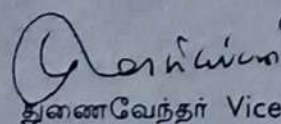 துணைவேந்தர் Vice